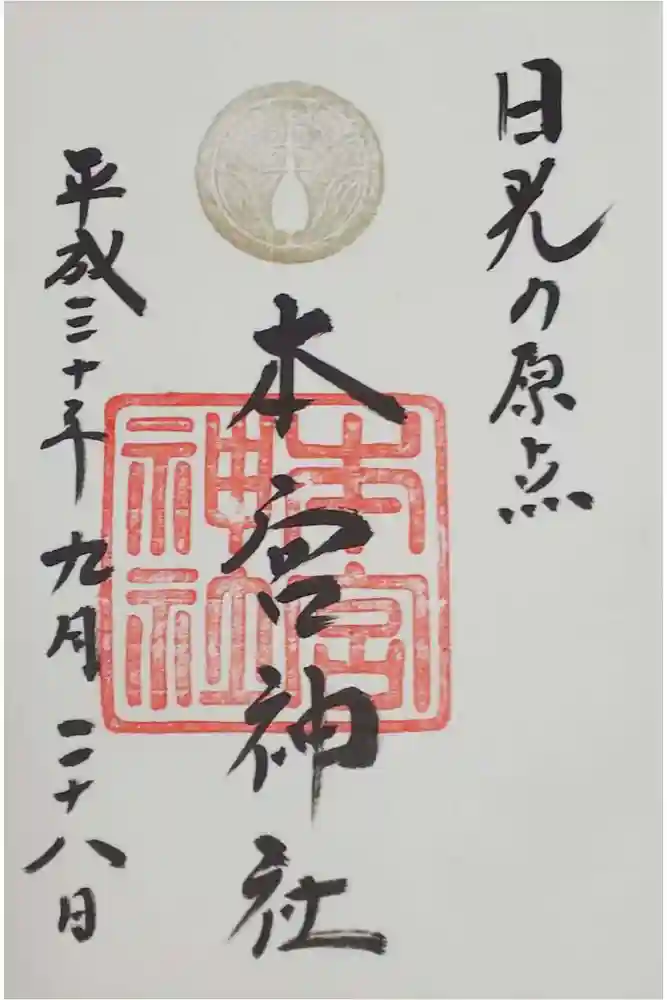 日光の原点
本宮神社
本宮神社
平成三十年九月二十八日